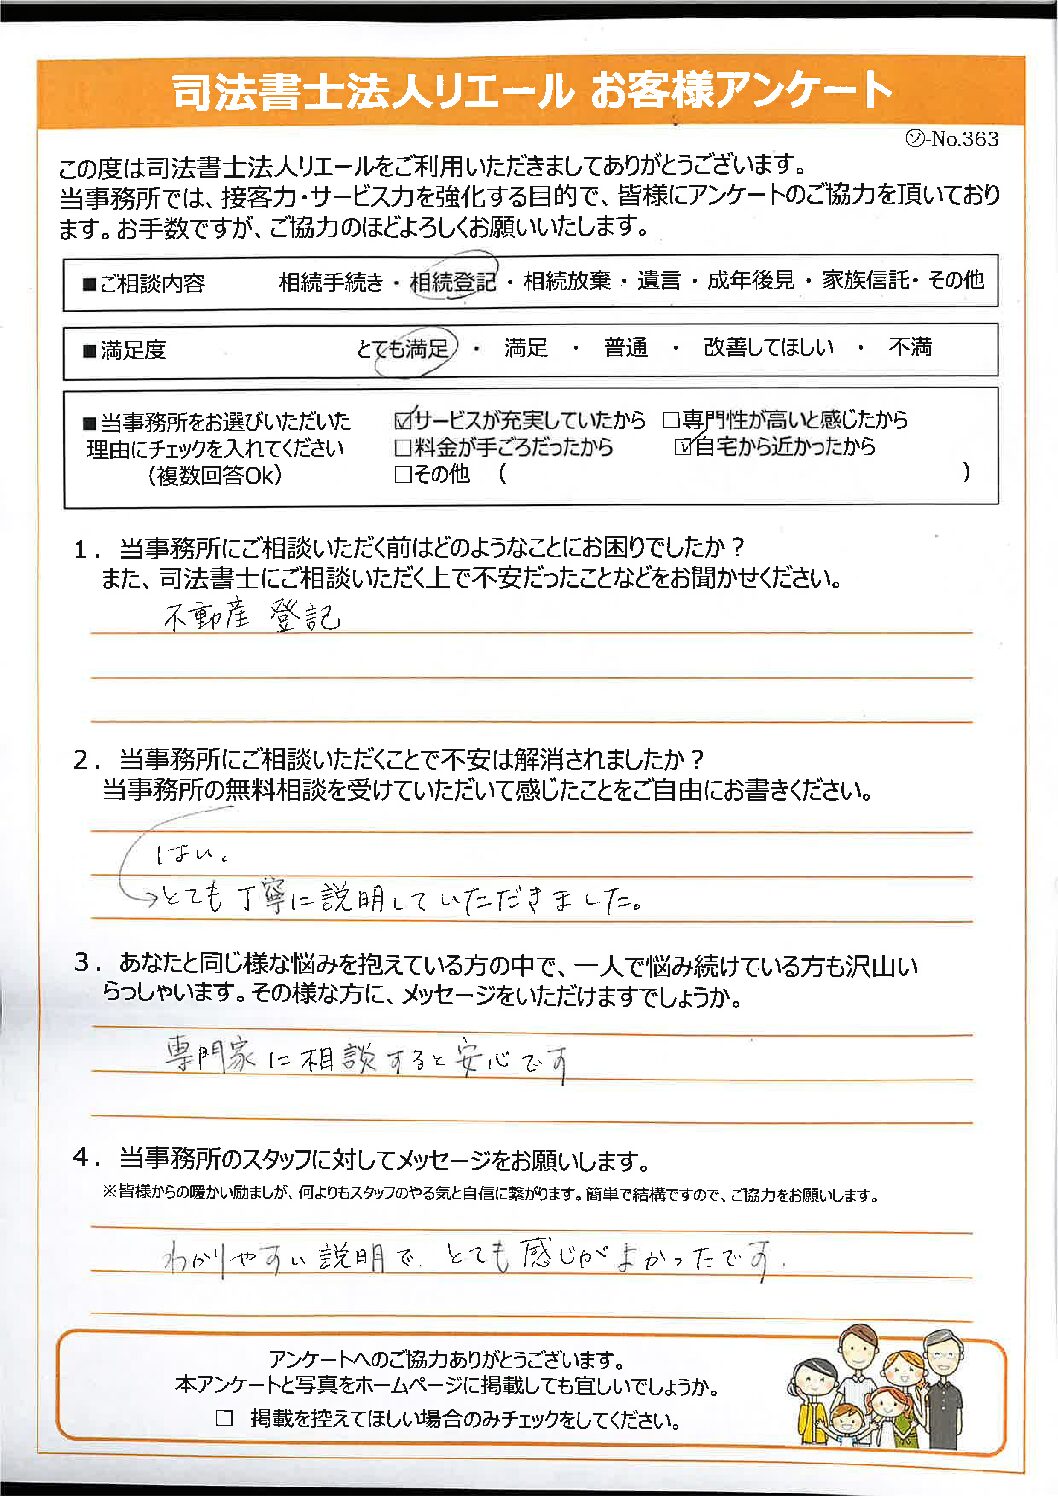 司法書士法人リエール お客様アンケート
㋞-No.363
この度は司法書士法人リエールをご利用いただきましてありがとうございます。
当事務所では、接客力・サービス力を強化する目的で、皆様にアンケートのご協力を頂いており
ます。お手数ですが、ご協力のほどよろしくお願いいたします。
■ご相談内容　相続手続き・相続登記・相続放棄・遺言・成年後見・家族信託・その他
■満足度　とても満足・満足・普通・改善してほしい・不満
■当事務所をお選びいただいた　☑サービスが充実していたから　☐専門性が高いと感じたから
理由にチェックを入れてください　☐料金が手ごろだったから　☑自宅から近かったから
（複数回答Ok）　☐その他　（　　　）
1．当事務所にご相談いただく前はどのようなことにお困りでしたか？
また、司法書士にご相談いただく上で不安だったことなどをお聞かせください。
不動産登記
2．当事務所にご相談いただくことで不安は解消されましたか？
当事務所の無料相談を受けていただいて感じたことをご自由にお書きください。
はい。
→とても丁寧に説明していただきました。
3．あなたと同じ様な悩みを抱えている方の中で、一人で悩み続けている方も沢山い
らっしゃいます。その様な方に、メッセージをいただけますでしょうか。
専門家に相談すると安心です
4．当事務所のスタッフに対してメッセージをお願いします。
※皆様からの暖かい励ましが、何よりもスタッフのやる気と自信に繋がります。簡単で結構ですので、ご協力をお願いします。
わかりやすい説明で、とても感じがよかったです.
アンケートへのご協力ありがとうございます。
本アンケートと写真をホームページに掲載しても宜しいでしょうか。
☐　掲載を控えてほしい場合のみチェックをしてください。